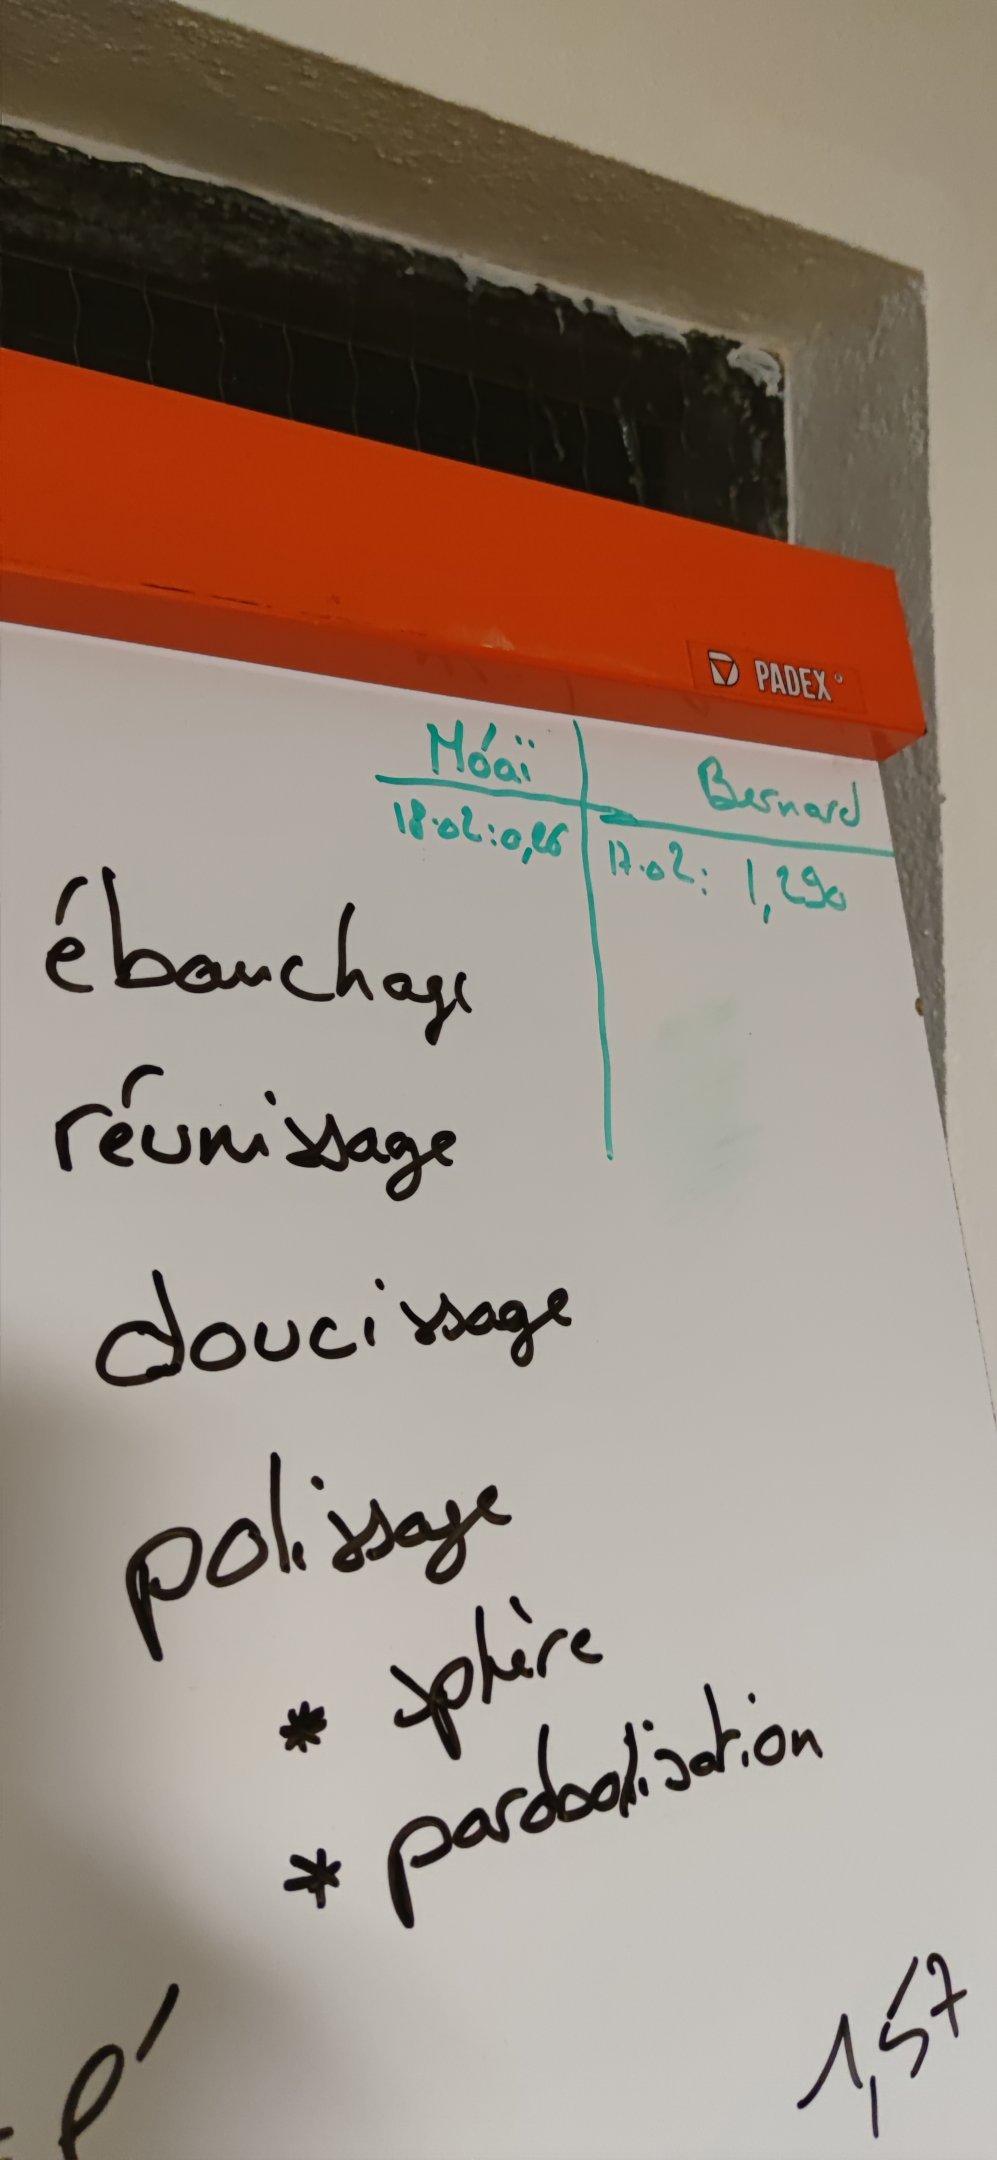 PADEX
Móaï
Bernard
18.02:0,26
17.02: 1,290
ébauchage
réunissage
doucissage
polissage
* sphère
* parabolisation
1,57